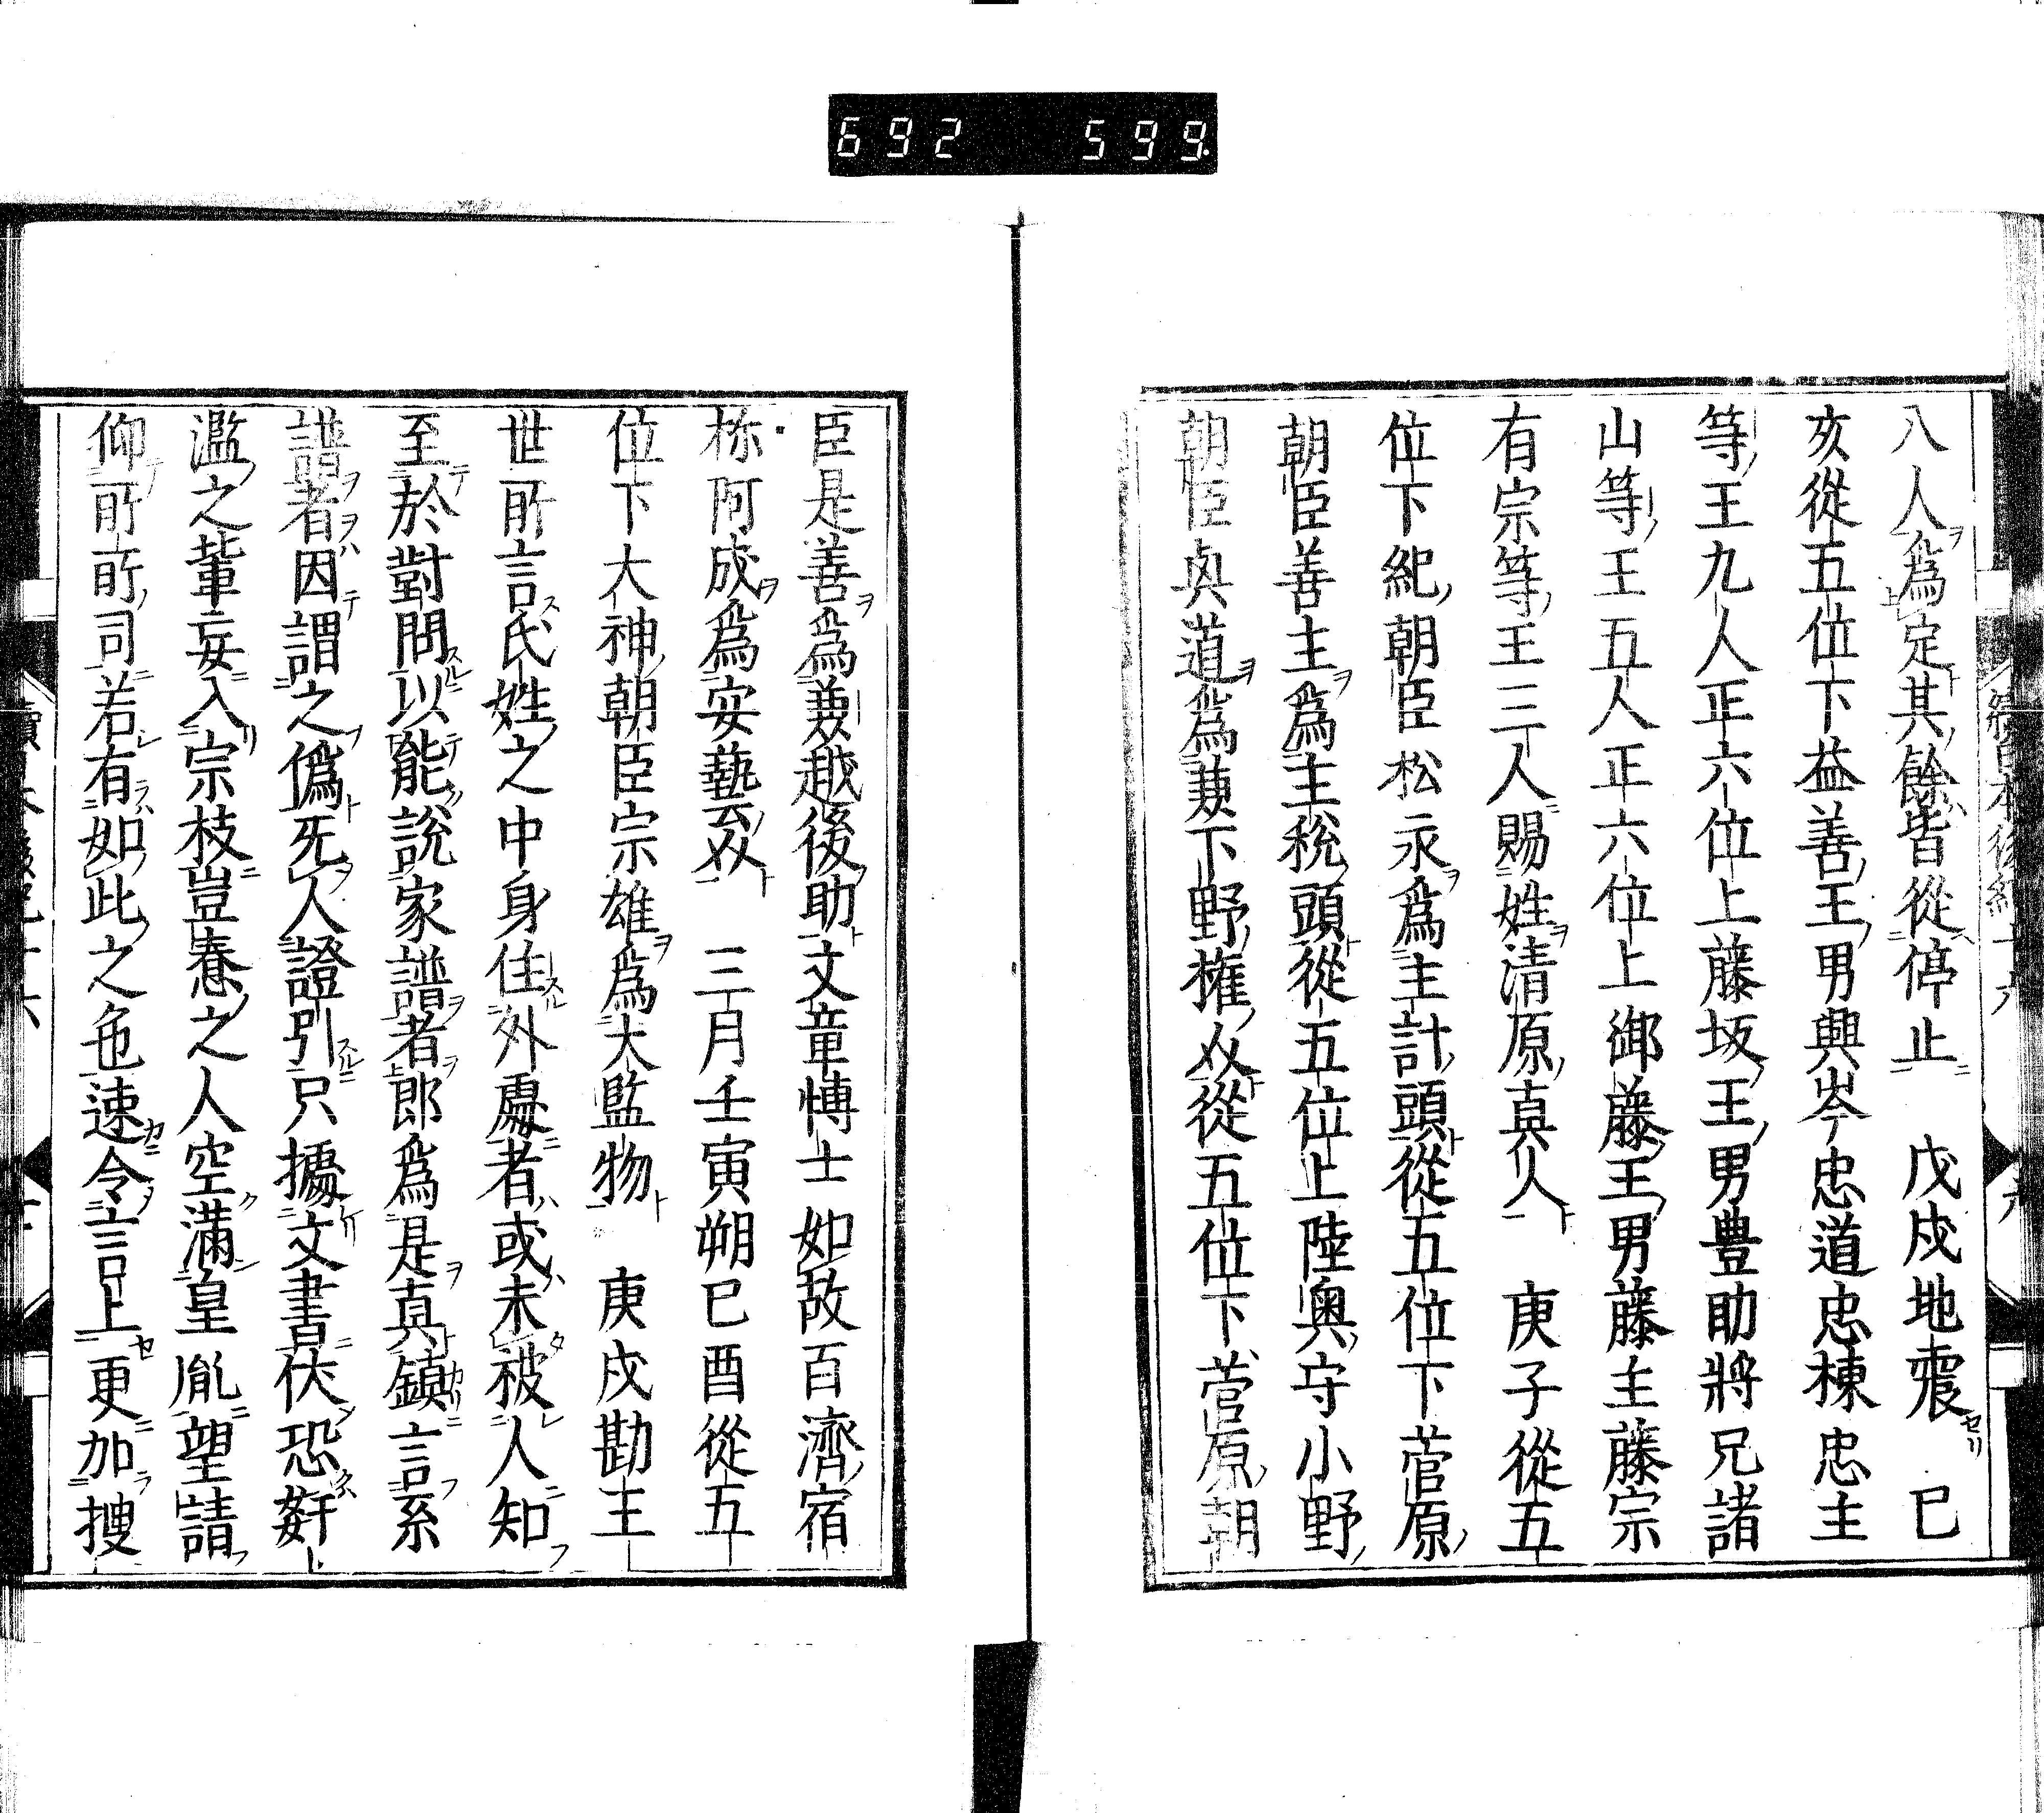 692 599.
八人為定其餘皆從停止 戊戌地震 已
亥從五位下益善王男興岑忠道忠棟忠主
等王九人正六位上藤坂王男豊助將兄諸
山等王五人正六位上御藤王男藤主藤宗
有宗等王三人賜姓清原真人 庚子從五
位下紀朝臣松永為主計頭從五位下菅原
朝臣善主為主税頭從五位上陸奥守小野
朝臣興道為兼下野権守從五位下菅原朝
臣是善為兼越後助文章博士如故百濟宿
祢河成為安藝介 三月壬寅朔已酉從五
位下大神朝臣宗雄為大監物 庚戌勘王
世所言氏姓之中身住外處者或未被人知
至於對問以能説家譜者郎為是真鎮言系
譜者因謂之偽死人證引只據文書伏恐奸
濫之輩妄入宗枝豈養之人空滿皇胤望請
仰所所司若有如此之色速令言上更加捜